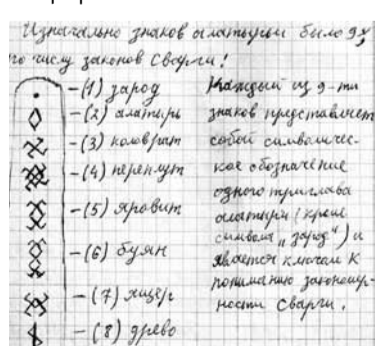 Изначально знаков алатырей было 9х,
по числу законов Сварги!
–(1) зарод
–(2) алатырь
–(3) коловрат
–(4) переплут
–(5) яровит
–(6) буян
–(7) ящер
–(8) древо
Каждый из 9-ти
знаков представляет
собой символичес-
кое обозначение
одного триглава
алатыря (кроме
символа „зарод“) и
является ключом к
пониманию закономер-
ности Сварги.